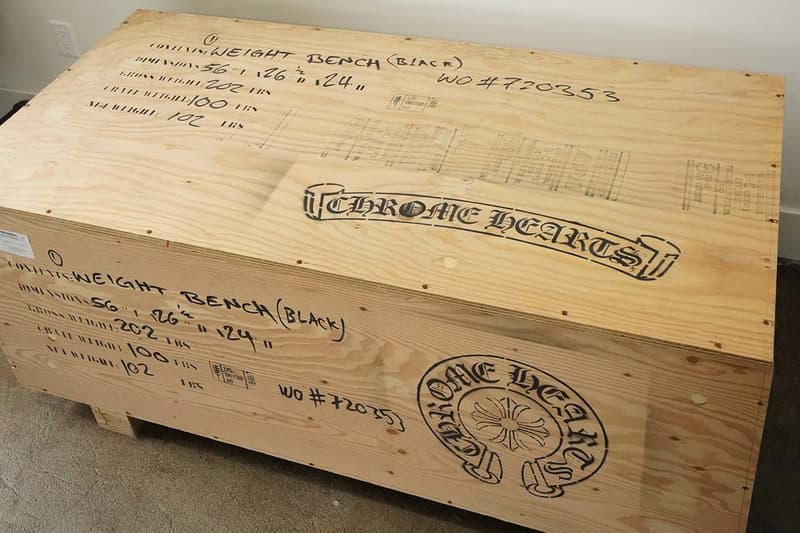 CONTENTS: ① WEIGHT BENCH (BLACK)
DIMENSIONS: 56" x 26 ½" x 24"
GROSS WEIGHT: 202 LBS
CRATE WEIGHT: 100 LBS
NET WEIGHT: 102 LBS
WO #720353
CHROME HEARTS
CONTENTS: ① WEIGHT BENCH (BLACK)
DIMENSIONS: 56" x 26 ½" x 24"
GROSS WEIGHT: 202 LBS
CRATE WEIGHT: 100 LBS
NET WEIGHT: 102 LBS
WO #720353
CHROME HEARTS